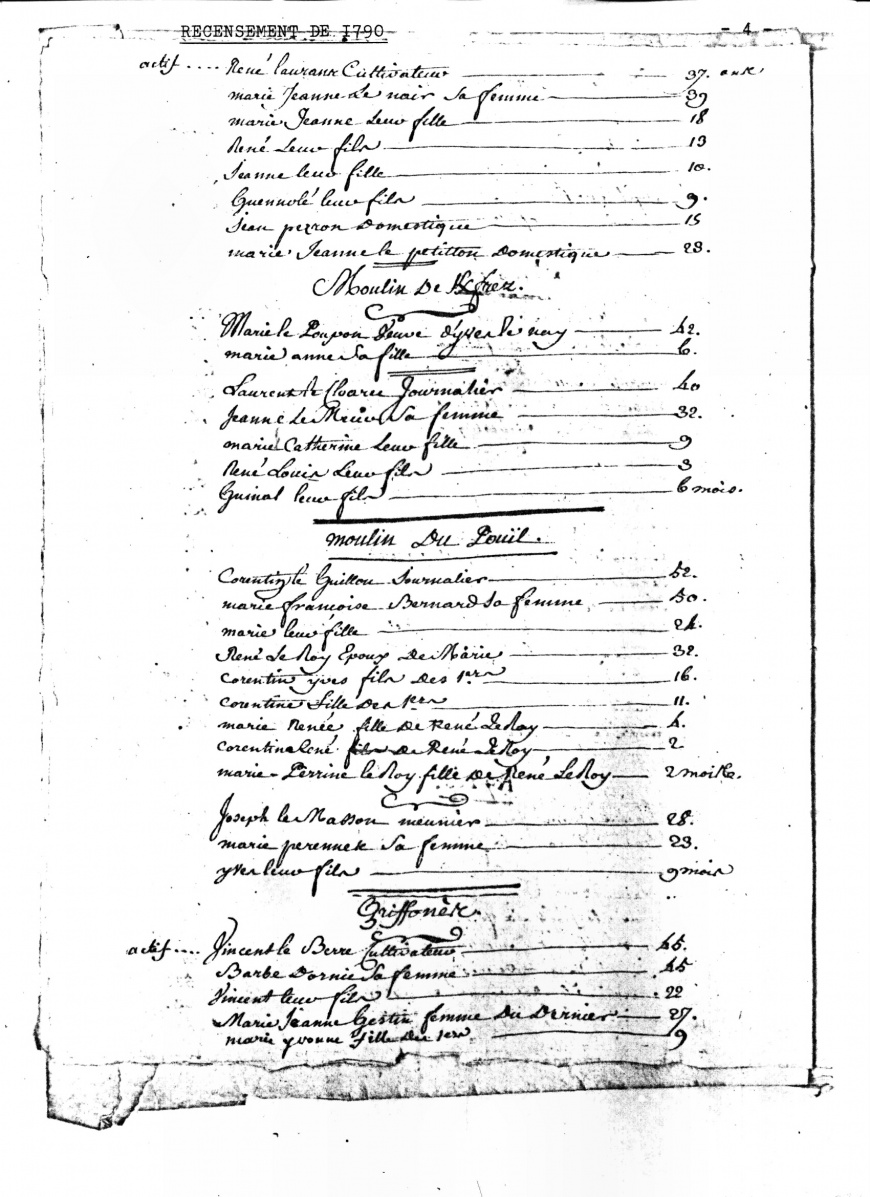 RECENSEMENT DE 1790 - 4 -
actif .... René laurans Cultivateur 37. ans
marie Jeanne Le nair Sa femme 39
marie Jeanne Leur fille 18
René Leur fils 13
Jeanne leur fille 10.
Guennolé leur fils 9.
Jean perron Domestique 15
marie Jeanne le petitton Domestique 23.
Moulin De
Marie le Poupon Veuve d'yves le nay 42.
marie anne Sa fille 6.
Laurent le Cloarec Journalier 40
Jeanne Le Meur Sa femme 32.
marie Catherine Leur fille 9
René Louis Leur fils 3
Guinal leur fils 6 mois.
moulin Du Pouïl.
Corentin le Guillou Journalier 52.
marie françoise Bernard Sa femme 50.
marie leur fille 24.
René Le Roy Epoux De Marie 32.
Corentin yves fils des 1ers 16.
Corentine fille des 1ers 11.
marie Renée fille De René Le Roy 4.
Corentin René fils De René LeRoy 2
marie-Perrine le Roy fille De René Le Roy 2 mois
Joseph le Masson meunier 28.
marie perennek Sa femme 23.
yves leur fils 9 mois
Griffonèz.
actif .... Vincent le Berre Cultivateur 45.
Barbe Dornic Sa femme 45
Vincent leur fils 22
Marie Jeanne Gestin femme Du Dernier 27.
marie yvonne fille des 1ers 9